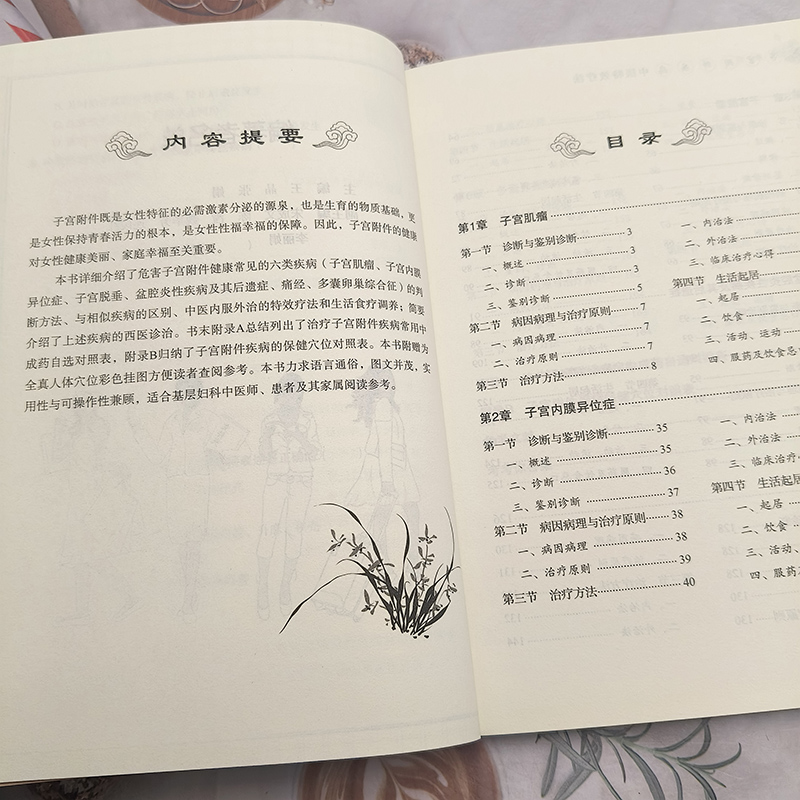 内容提要
子宫附件既是女性特征的必需激素分泌的源泉，也是生育的物质基础，更
是女性保持青春活力的根本，是女性性福幸福的保障。因此，子宫附件的健康
对女性健康美丽、家庭幸福至关重要。
本书详细介绍了危害子宫附件健康常见的六类疾病（子宫肌瘤、子宫内膜
异位症、子宫脱垂、盆腔炎性疾病及其后遗症、痛经、多囊卵巢综合征）的判
断方法、与相似疾病的区别、中医内服外治的特效疗法和生活食疗调养；简要
介绍了上述疾病的西医诊治。书末附录A总结列出了治疗子宫附件疾病常用中
成药自选对照表，附录B归纳了子宫附件疾病的保健穴位对照表。本书附赠为
全真人体穴位彩色挂图方便读者查阅参考。本书力求语言通俗，图文并茂，实
用性与可操作性兼顾，适合基层妇科中医师、患者及其家属阅读参考。
目录
第1章 子宫肌瘤
第一节 诊断与鉴别诊断 3
一、概述 3
二、诊断 3
三、鉴别诊断 5
第二节 病因病理与治疗原则 7
一、病因病理 7
二、治疗原则 7
第三节 治疗方法 8
一、内治法
二、外治法
三、临床治疗心得
第四节 生活起居
一、起居
二、饮食
三、活动、运动
四、服药及饮食忌
第2章 子宫内膜异位症
第一节 诊断与鉴别诊断 35
一、概述 35
二、诊断 36
三、鉴别诊断 37
第二节 病因病理与治疗原则 38
一、病因病理 38
二、治疗原则 39
第三节 治疗方法 40
一、内治法
二、外治法
三、临床治疗心
第四节 生活起居
一、起居
二、饮食
三、活动、
四、服药及